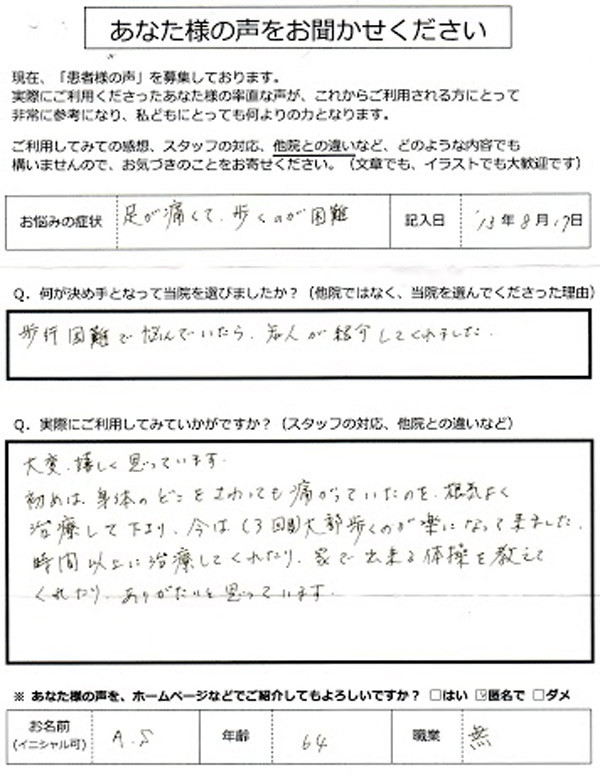 あなた様の声をお聞かせください
現在、「患者様の声」を募集しております。
実際にご利用くださったあなた様の率直な声が、これからご利用される方にとって
非常に参考になり、私どもにとっても何よりの力となります。
ご利用してみての感想、スタッフの対応、他院との違いなど、どのような内容でも
構いませんので、お気づきのことをお寄せください。（文章でも、イラストでも大歓迎です）
お悩みの症状 足が痛くて、歩くのが困難 記入日 '13年8月17日
Q．何が決め手となって当院を選びましたか？（他院ではなく、当院を選んでくださった理由）
歩行困難で悩んでいたら、知人が紹介してくれました。
Q．実際にご利用してみていかがですか？（スタッフの対応、他院との違いなど）
大変、嬉しく思っています。
初めは、身体のどこをさわっても痛がっていたのを、根気よく
治療して下さり、今は（3回目）大部歩くのが楽になって来ました。
時間以上に治療してくれたり、家で出来る体操を教えて
くれたり、ありがたいと思っています。
※ あなた様の声を、ホームページなどでご紹介してもよろしいですか？ □はい ☑匿名で □ダメ
お名前 A.S 年齢 64 職業 無
(イニシャル可)